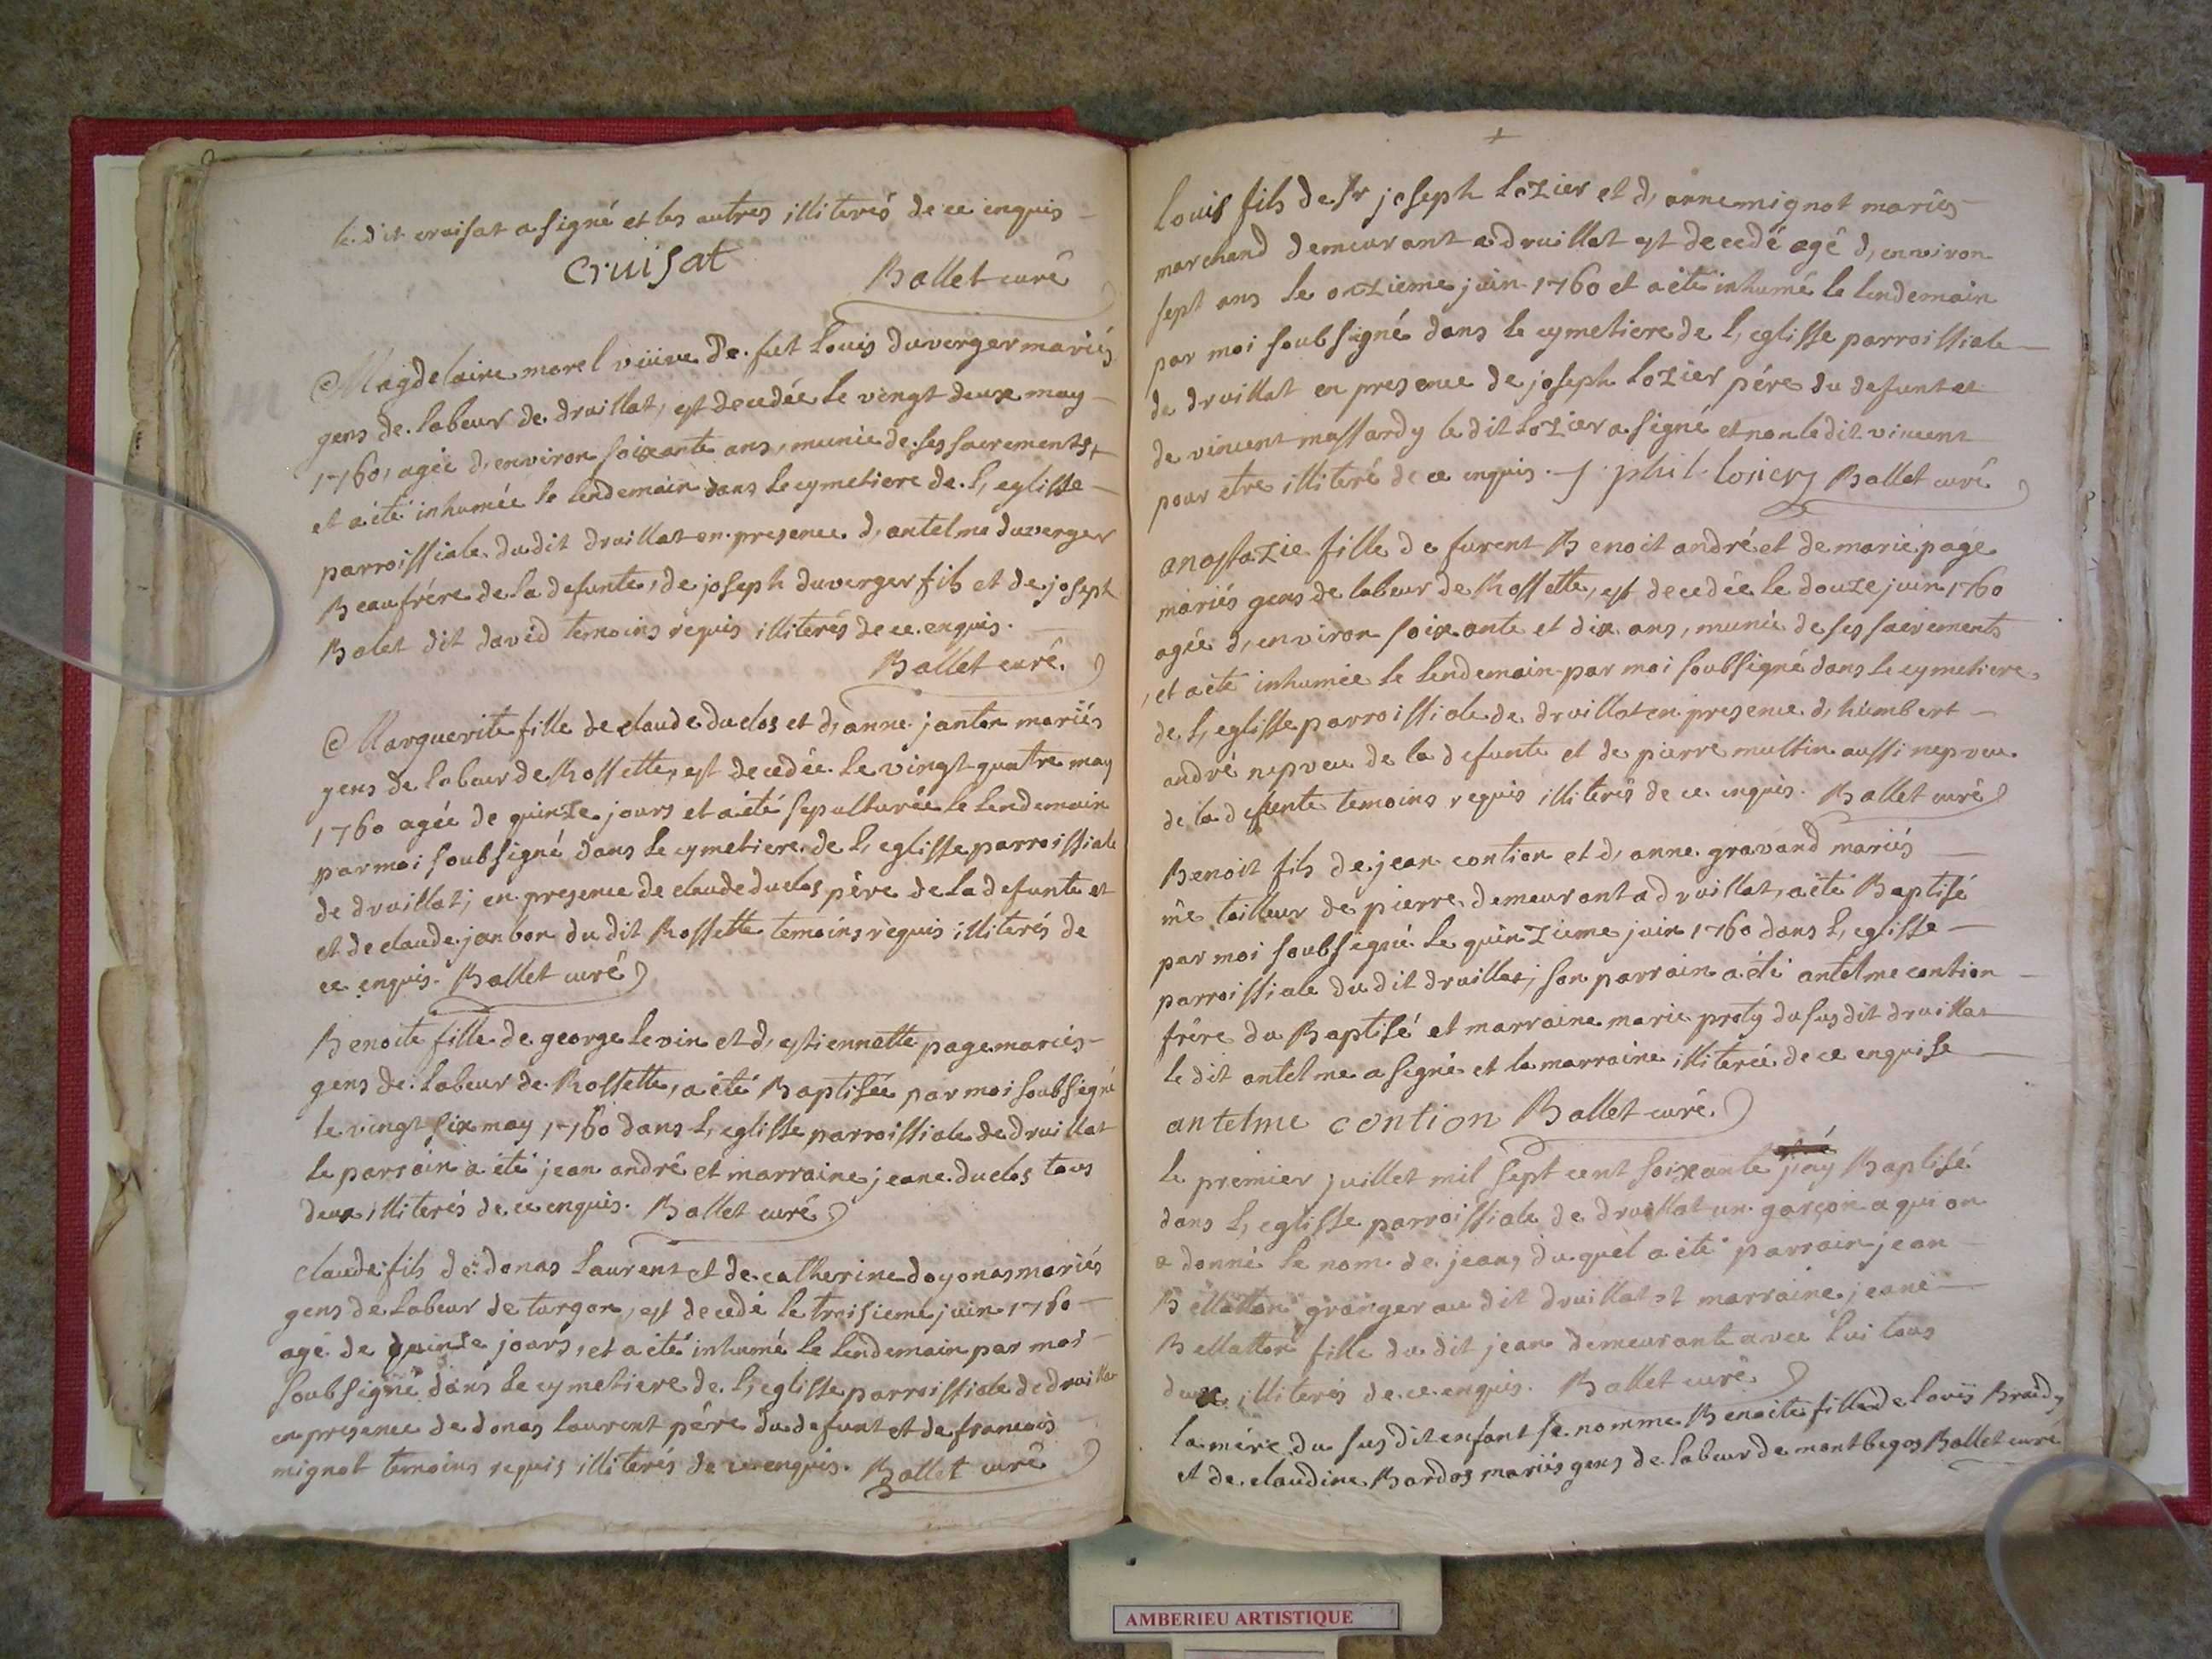 le dit cruisat a signé et les autres illiterés de ce enquis
Cruisat
Ballet curé
Magdelaine morel veüve de fut Louis duverger mariés
gens de labeur de druillat, est decedée le vingt deux may
1760, agée d, environ soixante ans, munie de ses sacrements,
et a été inhumée le lendemain dans le cymetiere de l, eglisse
parroissiale du dit druillat en presence d, antelme duverger
Beaufrére de la defunte, de joseph duverger fils et de joseph
Balet dit david temoins requis illiterés de ce enquis.
Ballet curé.
Marguerite fille de claude duclos et d, anne janton mariés
gens de labeur de Rossette, est decedée le vingt quatre may
1760 agée de quinze jours et a été sepulturée le lendemain
par moi soubsigné dans le cymetiere de l, eglisse parroissiale
de druillat, en presence de claude duclos pére de la defunte et
et de claude janbon du dit Rossette temoins requis illiterés de
ce enquis. Ballet curé
Benoite fille de george Levin et d, estiennette page mariés
gens de labeur de Rossette, a été Baptisée par moi soubsigné
le vingt six may 1760 dans l, eglisse parroissiale de druillat
le parrain a été jean andré et marraine jeane duclos tous
deux illiterés de ce enquis. Ballet curé
claude fils de donas Laurent et de catherine doyonas mariés
gens de labeur de turgon, est decedé le troisieme juin 1760
agé de quinze jours, et a été inhumé le lendemain par moi
soubsigné dans le cymetiere de l, eglisse parroissiale de druillat
en presence de donas laurent pére du defunt et de francois
mignot temoins requis illiterés de ce enquis. Ballet curé
Louis fils de sr joseph Lozier et d, anne mignot mariés
marchand demeurant a druillat est decedé agé d, environ
sept ans le onzieme juin 1760 et a été inhumé le lendemain
par moi soubsigné dans le cymetiere de l, eglisse parroissiale
de druillat en presence de joseph Lozier pére du defunt et
de vincent massardy le dit Lozier a signé et non le dit vincent
pour etre illiteré de ce enquis. J. phil. losier Ballet curé
anastazie fille de furent Benoit andré et de marie page
mariés gens de labeur de Rossette, est decedée le douze juin 1760
agée d, environ soixante et dix ans, munie de ses sacrements
, et a été inhumée le lendemain par moi soubsigné dans le cymetiere
de l, eglisse parroissiale de druillat en presence d, humbert
andré nepveu de la defunte et de pierre multin aussi nepveu
de la defunte temoins requis illiterés de ce enquis. Ballet curé
Benoit fils de jean contion et d, anne gravand mariés
me tailleur de pierre demeurant a druillat, a été Baptisé
par moi soubsigné le quinzieme juin 1760 dans l, eglisse
parroissiale du dit druillat, son parrain a été antelme contion
frére du Baptisé et marraine marie proty du susdit druillat
le dit antelme a signé et la marraine illiterée de ce enquise
antelme contion Ballet curé
Le premier juillet mil sept cent soixante j'ay Baptisé
dans l, eglisse parroissiale de druillat un garçon a qui on
a donné le nom de jean, duquel a été parrain jean
Bellatton granger au dit druillat et marraine jeane
Bellatton fille du dit jean demeurante avec lui tous
deux illiterés de ce enquis. Ballet curé
La mére du susdit enfant se nomme Benoite fille de Louis Braidy
et de claudine Bardos mariés gens de labeur de montbegos Ballet curé
AMBERIEU ARTISTIQUE